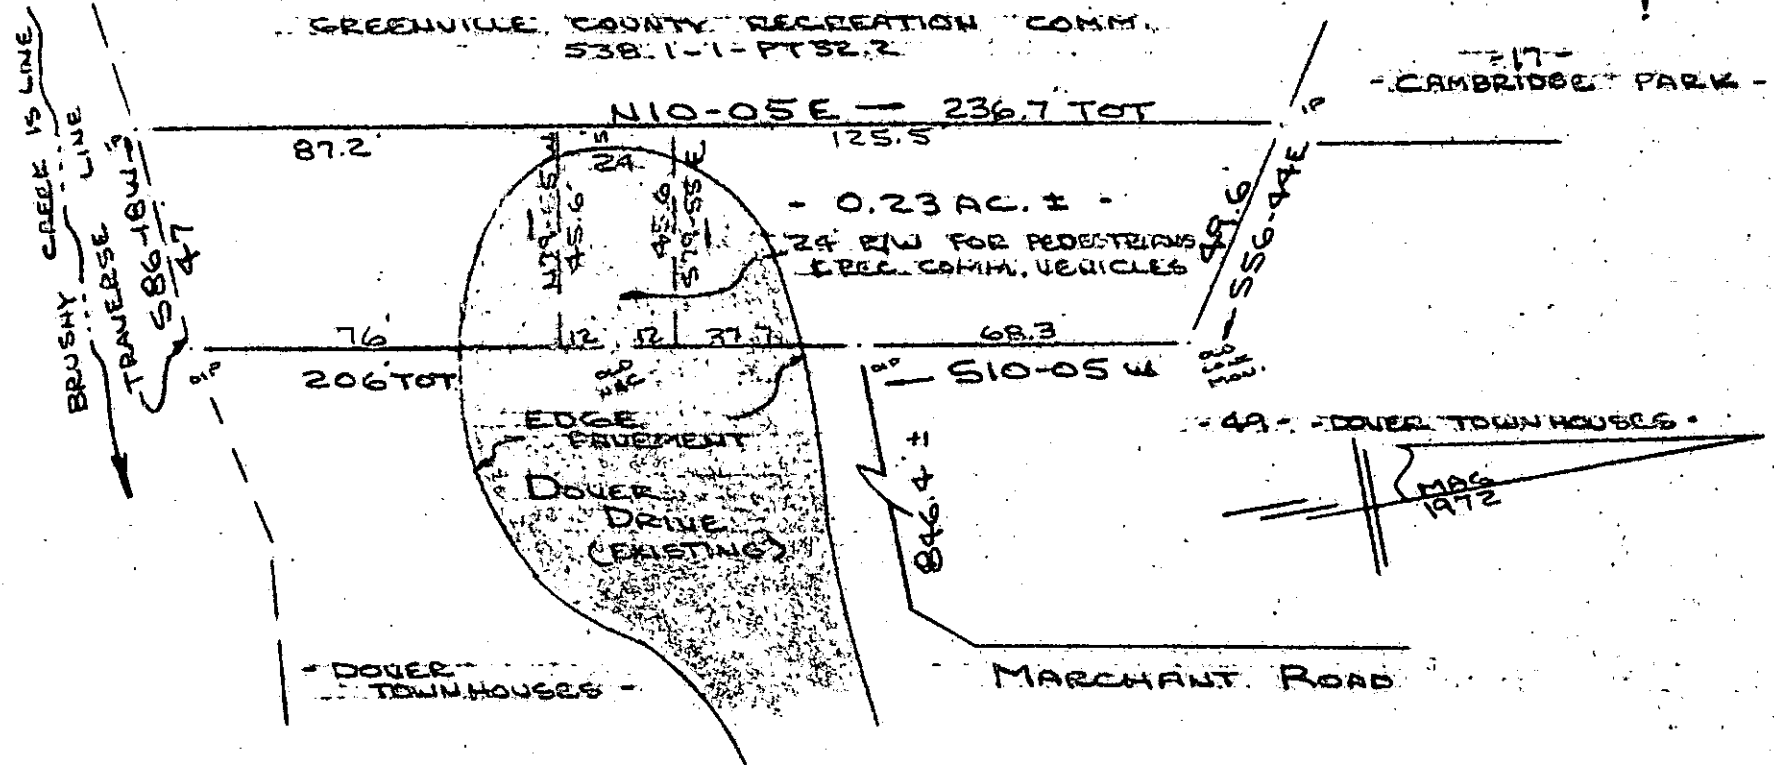 GREENVILLE COUNTY RECREATION COMM.
538.1-1-PT 52.2
-17-
- CAMBRIDGE PARK -
BRUSHY CREEK IS LINE
TRAVERSE LINE
S86-18W
47
IP
N10-05E — 236.7 TOT
IP
87.2
24
125.5
45.6
45.6
S79-55E
- 0.23 AC. ± -
24 R/W FOR PEDESTRIANS
& REC. COMM. VEHICLES
49.6
S56-44E
76
12
12
37.7
68.3
206 TOT
S10-05W
OLD
MON.
EDGE
PAVEMENT
-49- -DOVER TOWNHOUSES-
DOVER
DRIVE
(EXISTING)
846.4 ±
MAG
1972
- DOVER
TOWNHOUSES -
MARCHANT ROAD